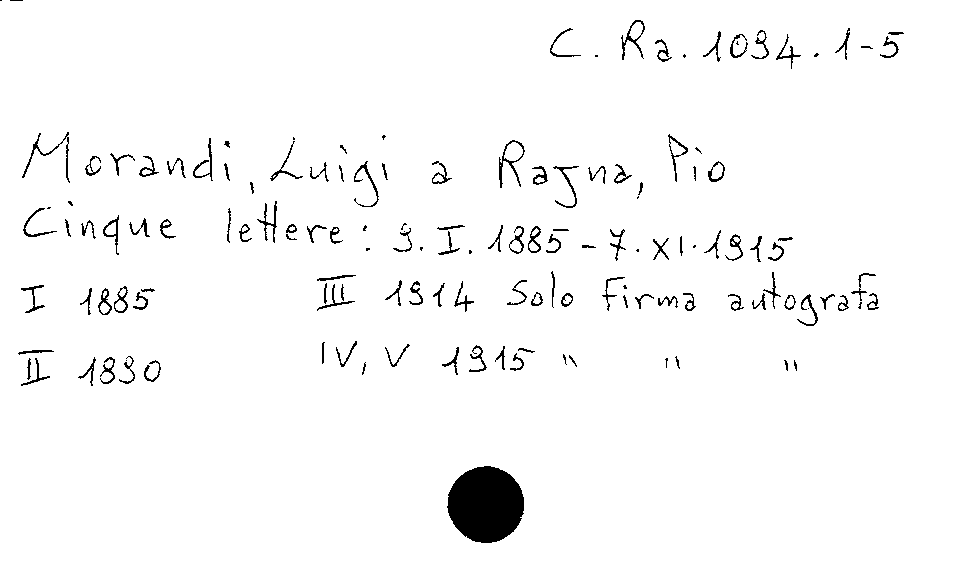 C. Ra. 1094. 1-5
Morandi, Luigi a Rajna, Pio
Cinque lettere: 9. I. 1885 - 7. XI. 1915
I 1885 III 1914 Solo firma autografa
II 1890 IV, V 1915 " " "